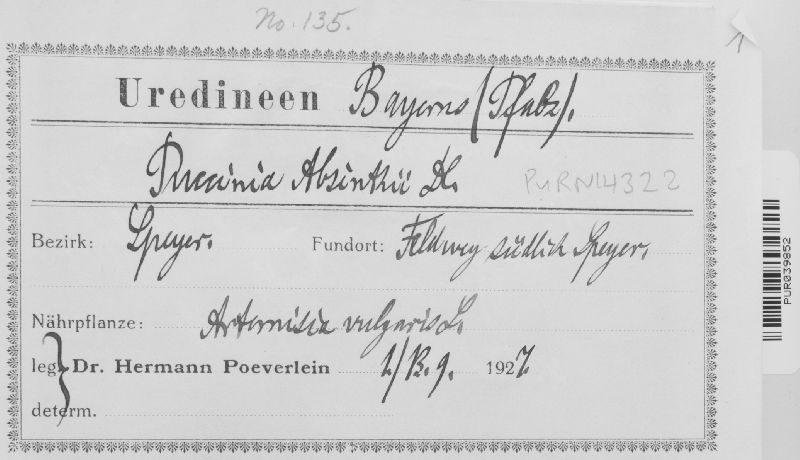 No. 135.
1
Uredineen Bayerns (Pfalz).
Puccinia Absinthii DC. PURN14322
Bezirk: Speyer. Fundort: Feldweg südlich Speyer.
Nährpflanze: Artemisia vulgaris L.
leg. Dr. Hermann Poeverlein 1927.
determ.
PUR039852